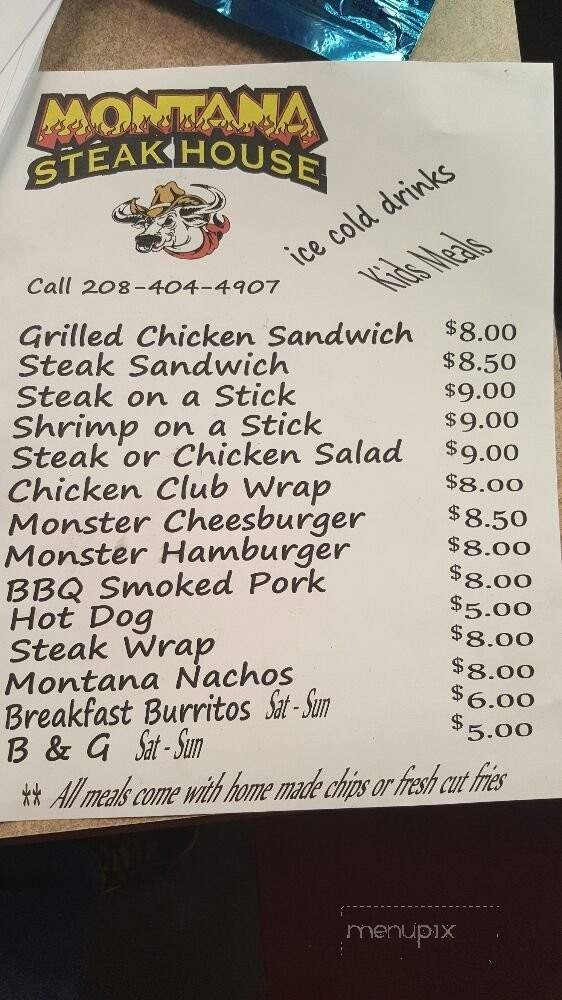 MONTANA
STEAK HOUSE
ice cold drinks
Kids Meals
Call 208-404-4907
Grilled Chicken Sandwich $8.00
Steak Sandwich $8.50
Steak on a Stick $9.00
Shrimp on a Stick $9.00
Steak or Chicken Salad $9.00
Chicken Club Wrap $8.00
Monster Cheesburger $8.50
Monster Hamburger $8.00
BBQ Smoked Pork $8.00
Hot Dog $5.00
Steak Wrap $8.00
Montana Nachos $8.00
Breakfast Burritos Sat - Sun $6.00
B & G Sat - Sun $5.00
** All meals come with home made chips or fresh cut fries
menupix